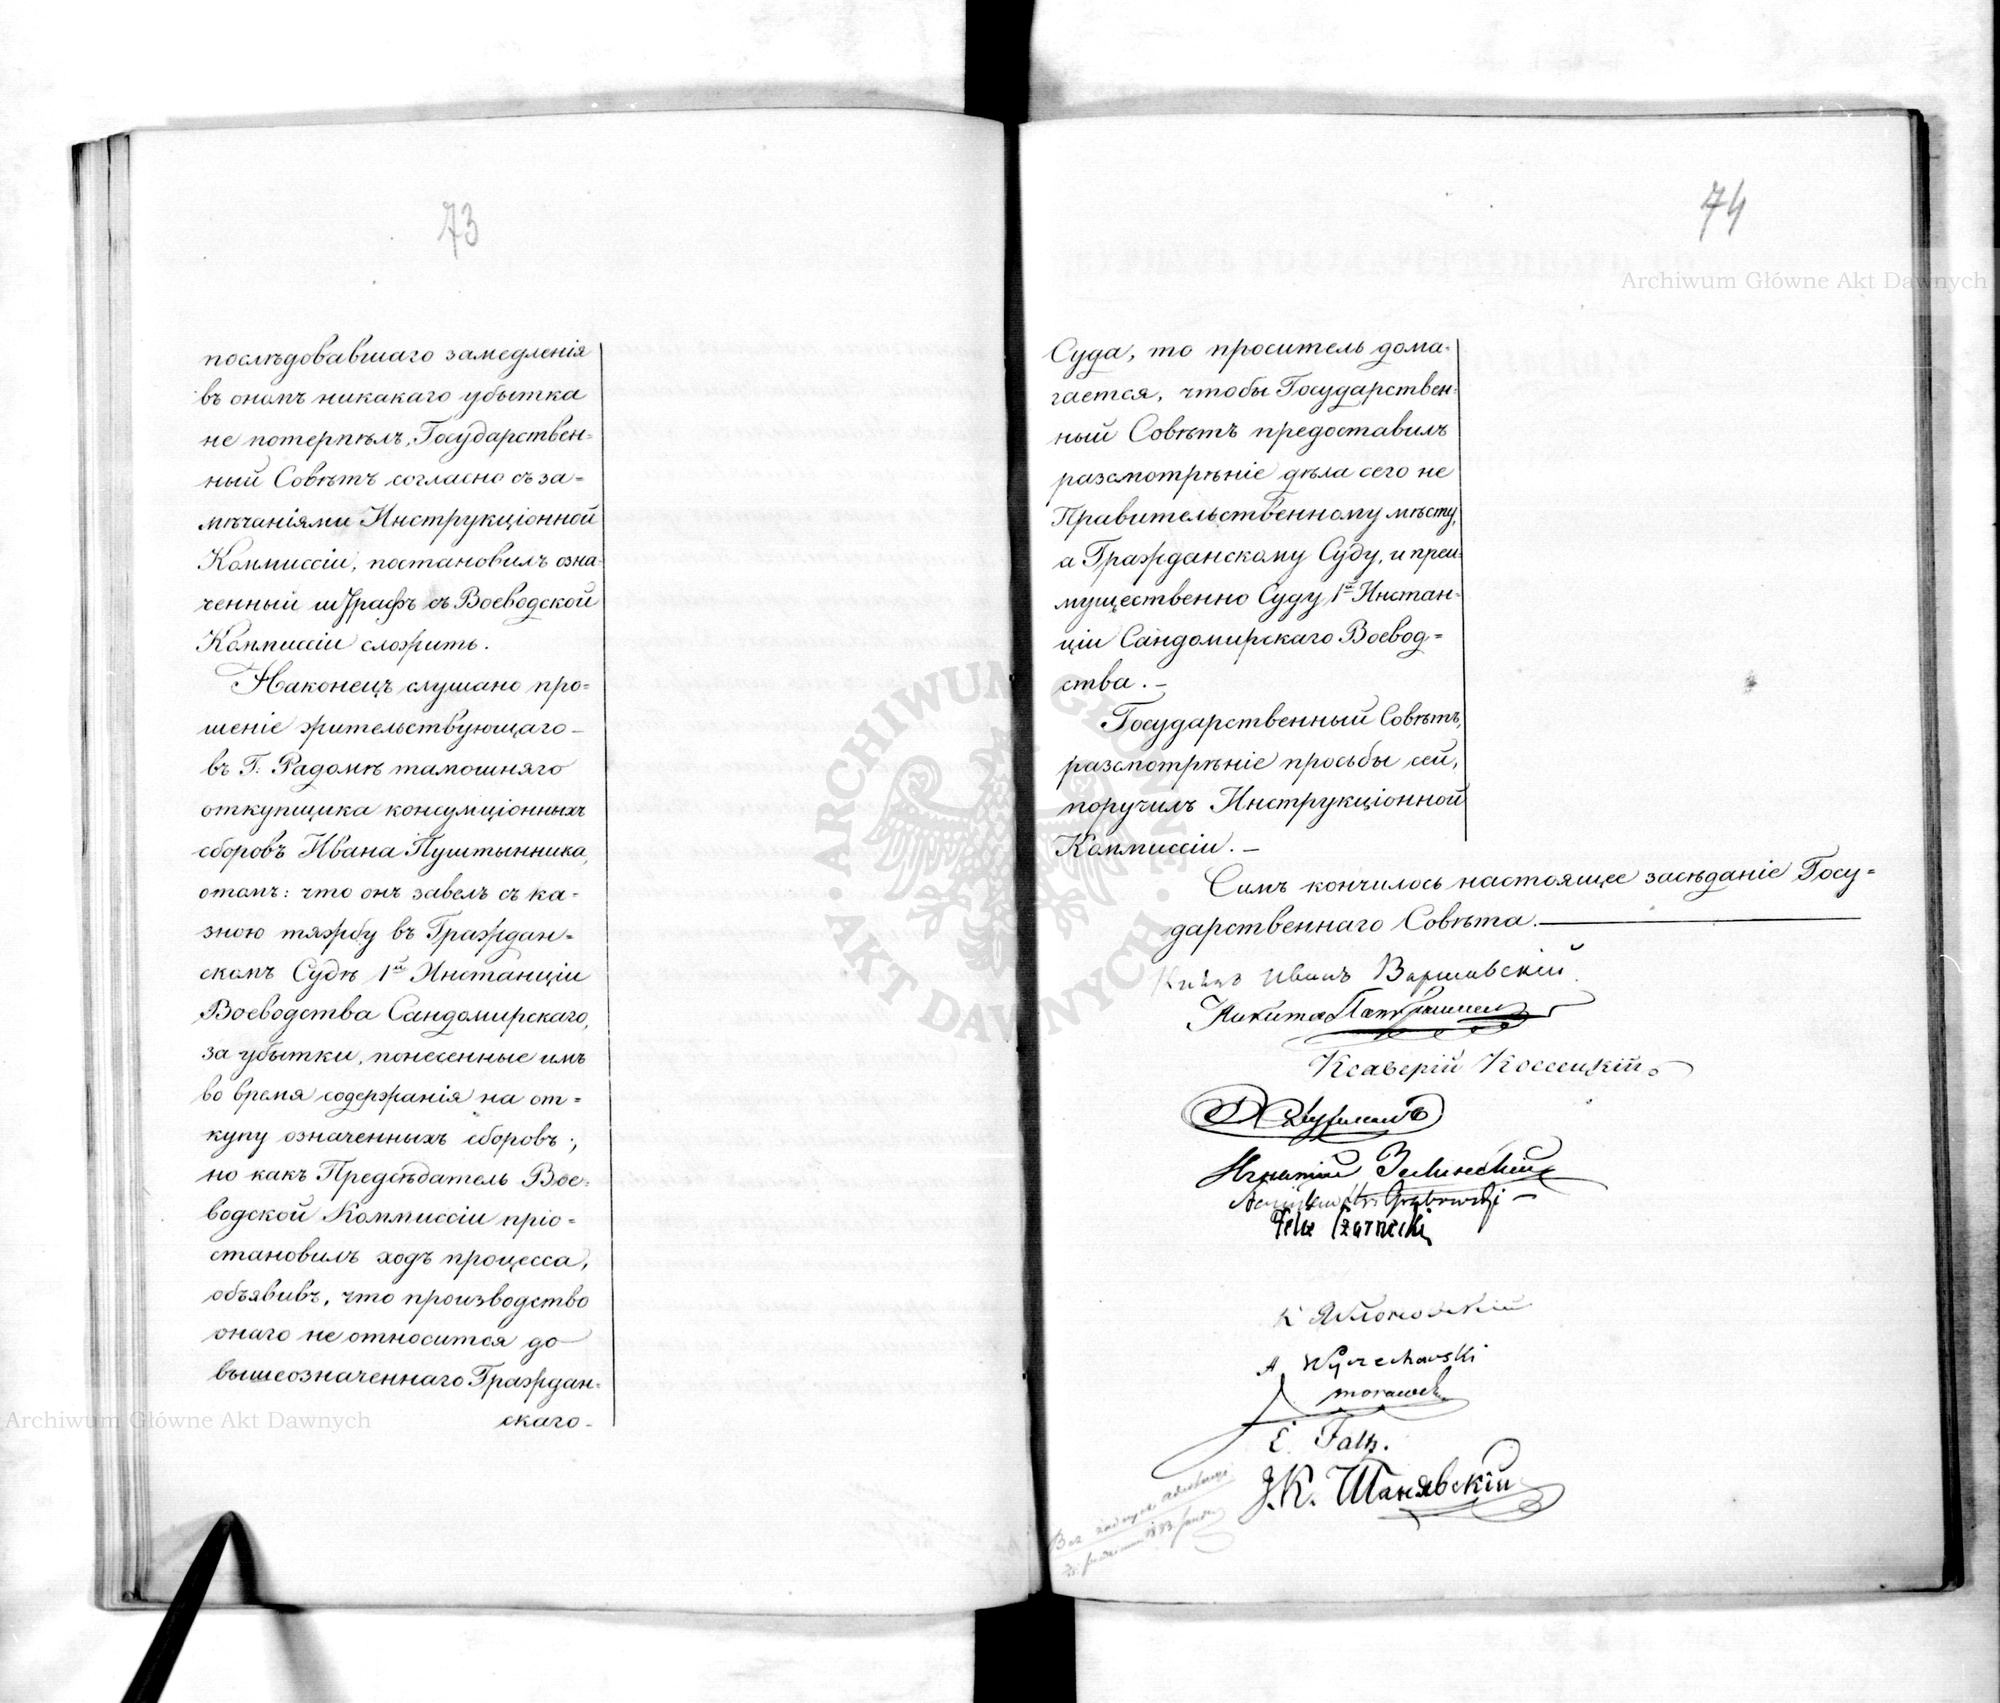 73
послѣдовавшаго замедленія
въ ономъ никакаго убытка
не потерпѣлъ, Государствен=
ный Совѣтъ согласно съ за=
мѣчаніями Инструкціонной
Коммиссіи, постановилъ озна
ченный штрафъ съ Воеводской
Коммиссіи сложить.
Наконецъ слушано про=
шеніе жительствующаго
въ Г. Радомѣ тамошняго
откупщика консумціонныхъ
сборовъ Ивана Пуштынника,
отомъ: что онъ завелъ съ ка=
зною тяжбу въ Граждан=
скомъ Судѣ 1й Инстанціи
Воеводства Сандомирскаго,
за убытки, понесенные имъ
во время содержанія на от=
купу означенныхъ сборовъ;
но какъ Предсѣдатель Вое=
водской Коммиссіи пріо=
становилъ ходъ процесса,
объявивъ, что производство
онаго не относится до
вышеозначеннаго Граждан=
скаго
74
Суда, то проситель дома=
гается, чтобы Государствен=
ный Совѣтъ предоставилъ
разсмотрѣніе дѣла сего не
Правительственному мѣсту,
а Гражданскому Суду, и преи=
мущественно Суду 1й Инстан=
ціи Сандомирскаго Воевод=
ства.—
Государственный Совѣтъ,
разсмотрѣніе просьбы сей,
поручилъ Инструкціонной
Коммиссіи.—
Симъ кончилось настоящее засѣданіе Госу=
дарственнаго Совѣта.
Князь Иванъ Варшавскій
Никита Панкратьевъ
Ксаверій Коссецкій
Фурманъ
Игнатій Зелинскій
Grabowski
Felix Czarnecki
К Яблоновскій
A Wyczechowski
Morawski
E. Faltz.
J.К. Шанявскій
Archiwum Główne Akt Dawnych
Archiwum Główne Akt Dawnych
ARCHIWUM GŁÓWNE AKT DAWNYCH